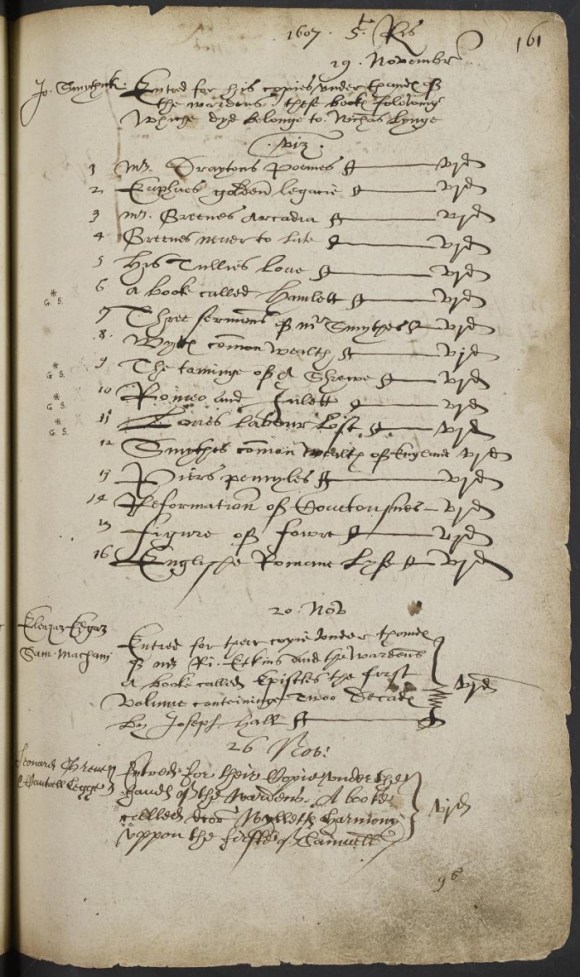 161
1607. 5 Rs
19. Novembr
Jo. Smythick. Entred for his copies vnder thandes of
the wardens. these bookes followinge
Whiche dyd belonge to Nicholas Lynge
.viz.
1 mr. Draytons Poemes vjd
2 Euphues golden legacie vjd
3 mr. Greenes Arcadia vjd
4 Greenes never to late vjd
5 his Tullies loue vjd
6 a booke called Hamlett vjd
G. S.
7 Three sermons of mr Smythes vjd
8. Wyttes comon wealth vjd
9 The taminge of A Shrewe vjd
G S.
10 Romeo and Julett vjd
G S.
11 Loues labour Lost vjd
G. S.
12 Smythes comon wealth of England vjd
13 Piers pennyles vjd
14 Reformation of vjd
15 Figure of fowre vjd
16 Englishe Romane lyfe vjd
20. Nov
Eleazar Edgar
Sam. Macham
Entred for their copie vnder thandes
of mr Ri. Etkins and the wardens
a booke called Epistles the first
Volume conteininge Twoo Decades vjd
by Joseph Hall
26 Nov:
Leonard Greene
Entred for their Copie vnder the
handes of the wardens. A booke
called doc: Willetts harmonie vjd
vppon the firste of Samuell